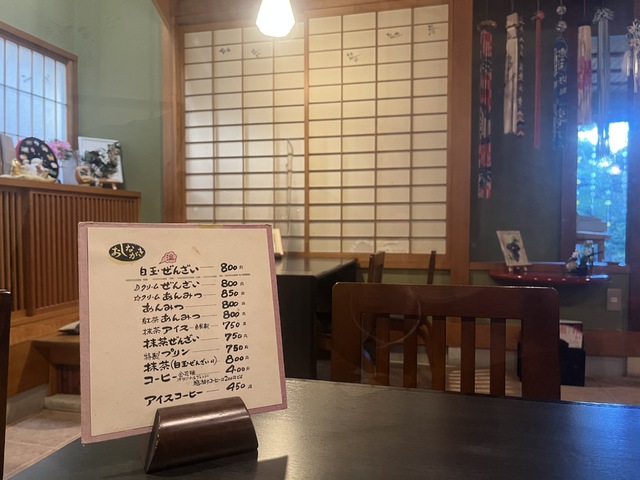 おしながき
温
白玉ぜんざい 800円
クリームぜんざい 800円
クリームあんみつ 850円
あんみつ 800円
紅茶あんみつ 800円
抹茶アイス 自家製 750円
抹茶ぜんざい 750円
特製プリン 750円
抹茶(白玉ぜんざい付) 800円
コーヒー 400円
アイスコーヒー 450円